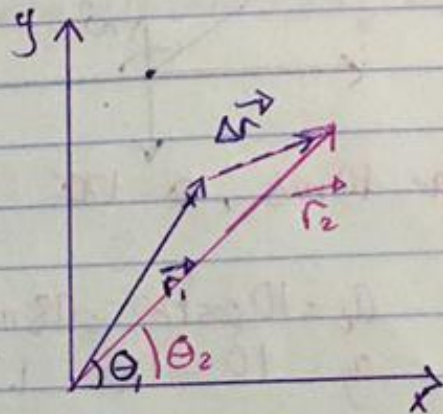 y
Δr⃗
r⃗₂
r⃗₁
θ₁
θ₂
x